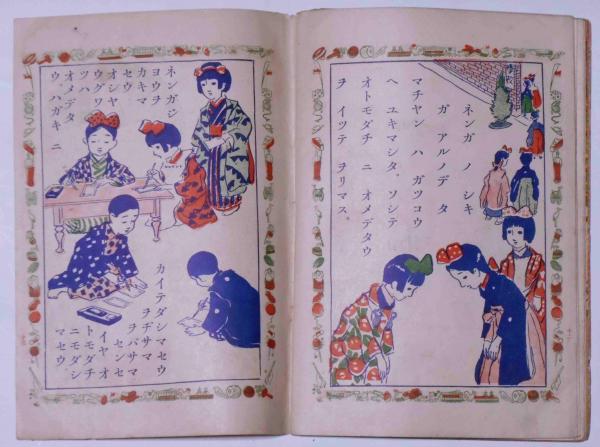 ネンガノ シキ
ガ アルノデ タ
マチヤン ハ ガツコウ
ヘ ユキマシタ。ソシテ
オトモダチ ニ オメデタウ
ヲ イツテ ヲリマス。
ネンガジ
ヨウヲ
カキマ
セウ
オシヤ
ウグワ
ツハ
オメデタ
ウ ハガキ ニ
カイテダシマセウ
ヲヂサマ
ヲバサマ
センセ
イヤ オ
トモダチ
ニモダシ
マセウ。